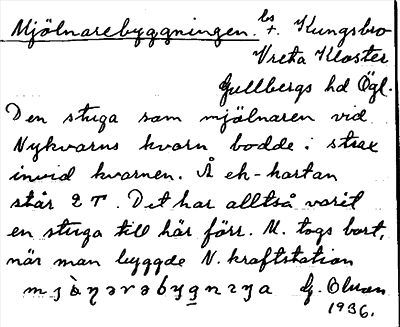 Mjölnarebyggningen. bs. t. Kungsbro
Vreta Kloster
Gullbergs hd Ögl.
Den stuga som mjölnaren vid
Nykvarns kvarn bodde i strax
invid kvarnen. Å ek-kartan
står 2 T. Det har alltså varit
en stuga till här förr. M. togs bort,
när man byggde N. kraftstation
G. Olsson
1936.